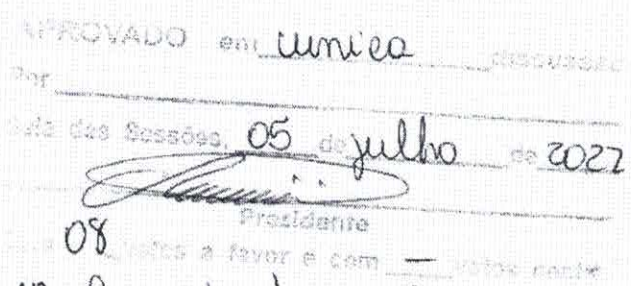 APROVADO em unica discussão
Por
Sala das Sessões, 05 de julho de 2022
Presidente
08 votos a favor e com — votos contra